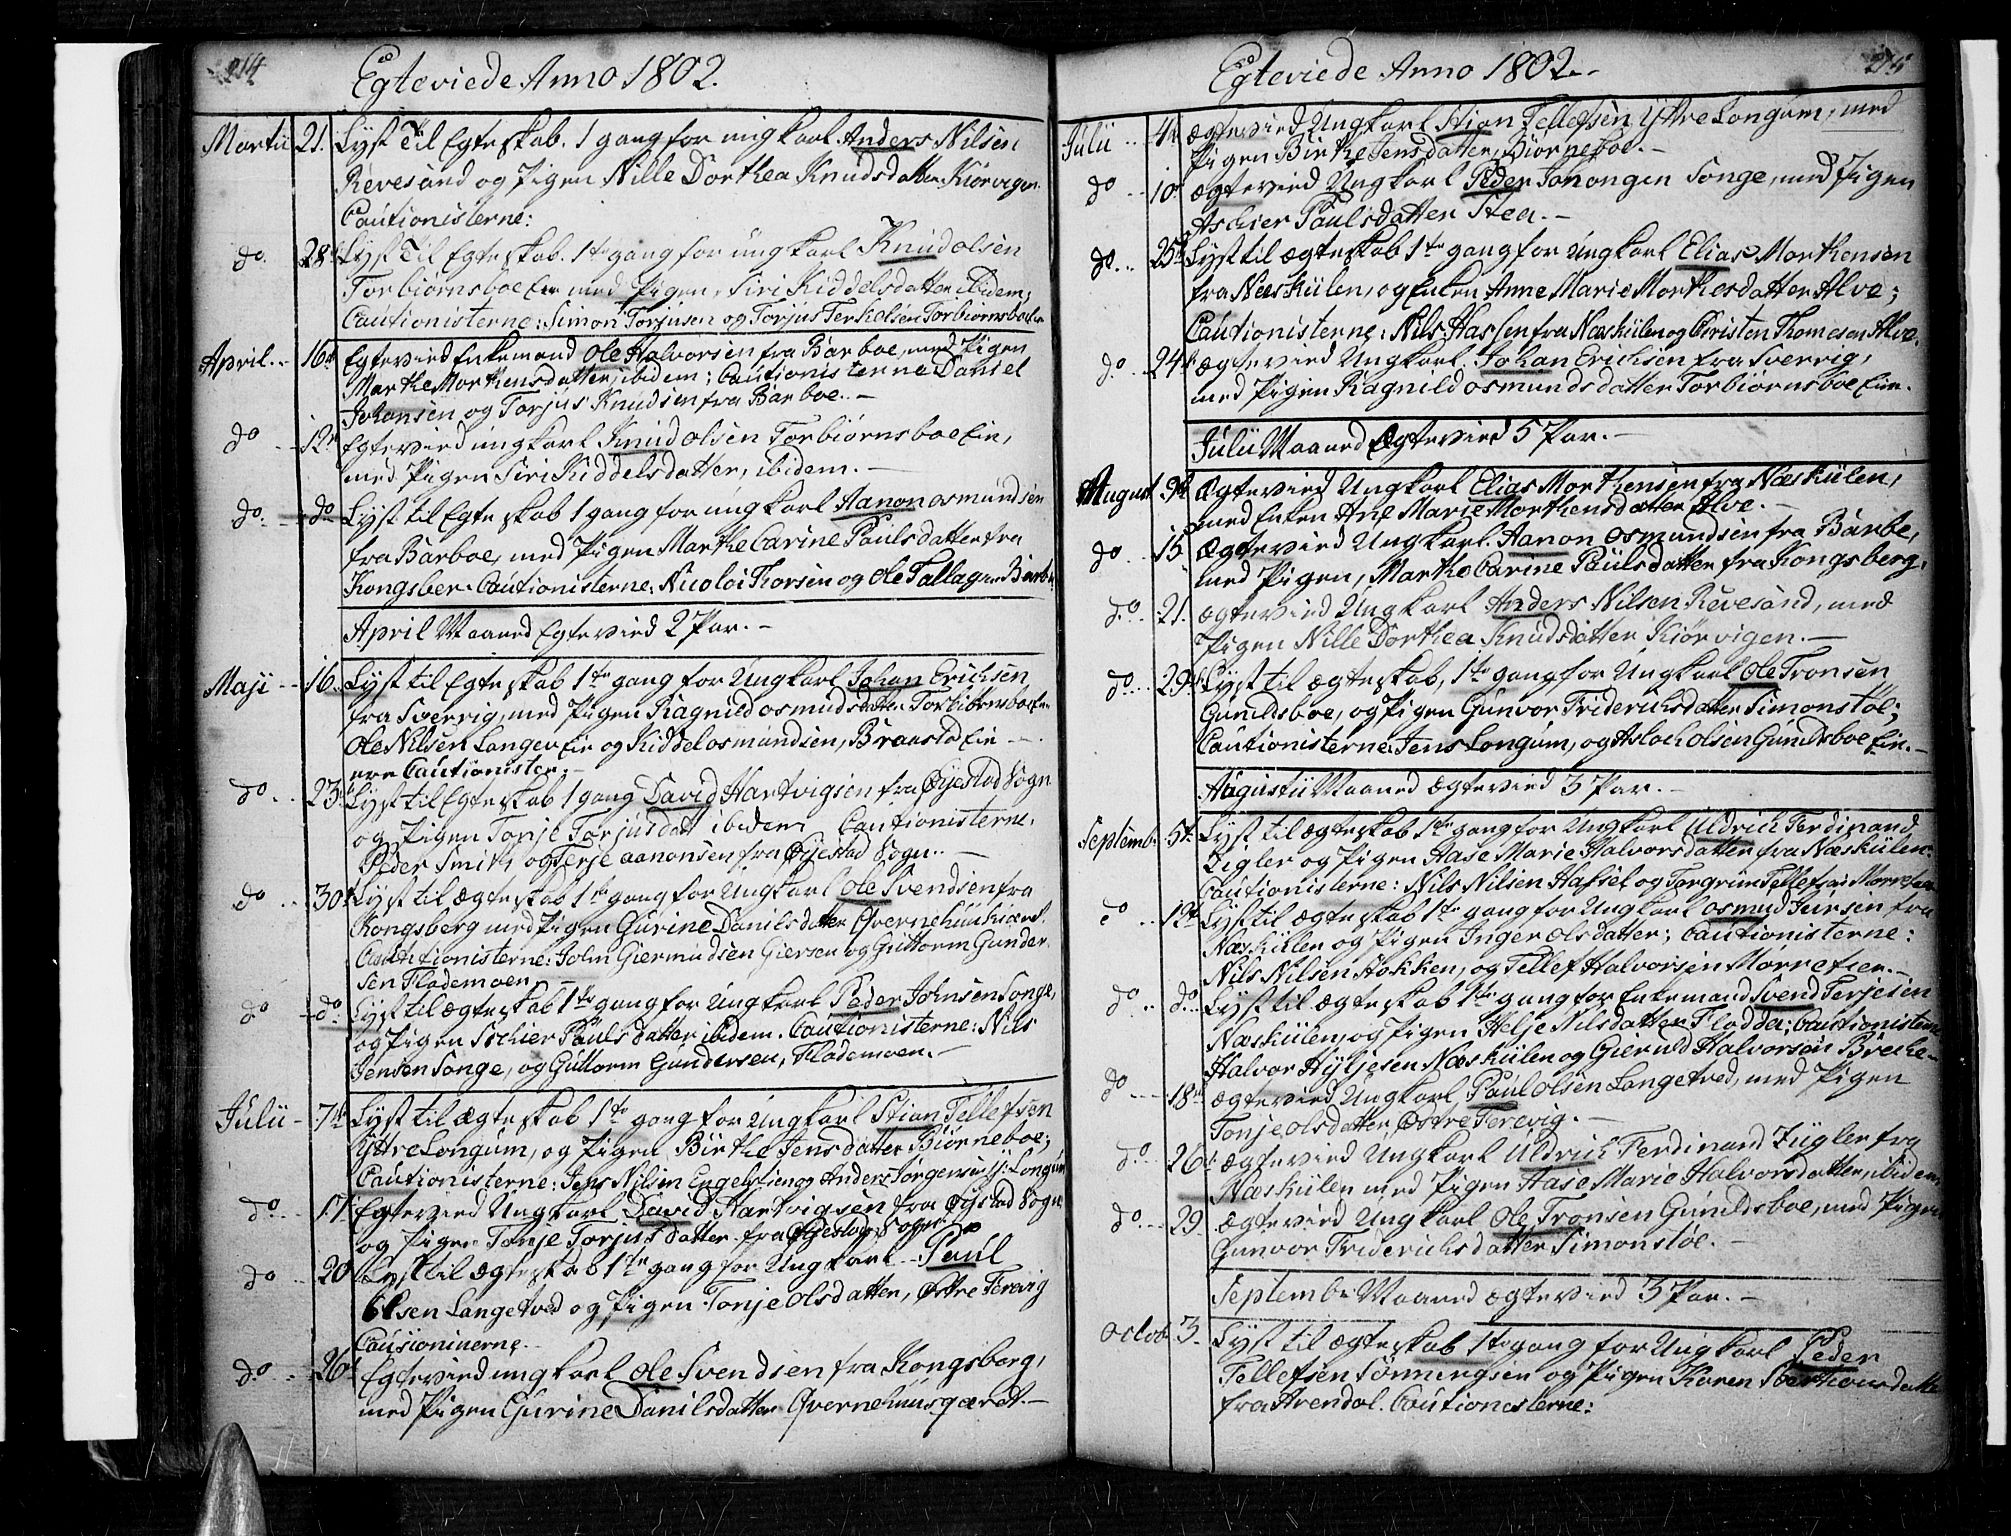 214
Egteviede Anno 1802.
Martii 21. Lyst Til Egteskab. 1 gang for ungkarl Anders Nilsen
Revesand og Pigen Nille Dorthea Knudsdatter Kiørvigen.
Cautionisterne:
do. 28de Lyst Til Egteskab. 1te gang for ungkarl Knud olsen
Torbiørnsboe Eie med Pigen, Siri Kiddelsdatter ibidem;
Cautionisterne: Simon Torjusen og Torjus Terkelsen Torbiørnsboe
April 16de Egtevied Enkemand Ole Halvorsen fra Barboe, med Pigen
Marthe Morthensdatter, ibidem; Cautionisterne Daniel
Johansen og Torjus Knudsen fra Barboe. -
do 12te Egtevied ungkarl Knud olsen Torbiørnsboe Eie,
med Pigen Siri Kiddelsdatter, ibidem. -
do. do Lyst til Egteskab 1 gang for ungkarl Aanon osmundsen
fra Barboe, med Pigen Marthe Carine Paulsdatter fra
Kongsber. Cautionisterne: Nicolai Thorsen og Ole Tallagsen Barbo
April Maaned Egtevied 2 Par. -
Maji 16. Lyst til Egteskab 1te gang for Ungkarl Johan Erichsen
fra Sverrig, med Pigen Ragnild osmundsdatter Torbiørnsboe Eie
Ole Nilsen Langev Eie og Kiddel osmundsen, Braastad Eie
ere Cautionister. -
do 23de Lyst til Egteskab 1 gang David Hartvigsen fra Øyestad Sogn
og Pigen Tonje Torjusdatt ibidem Cautionisterne.
Peder Smith og Terje aanonsen fra Øyestad Sogn. -
do 30te Lyst til Ægteskab 1te gang for Ungkarl Ole Svendsen fra
Kongsberg med Pigen Gurine Danilsdatter Qvernehuus
Cautitionisterne: John Giermundsen Giersen og Guttorm Gunder
sen Flademoen.
do do Lyst til Ægteskab 1te gang for Ungkarl Peder Johnsen Songe,
og Pigen Aschier Paulsdatter ibidem. Cautionisterne: Nils
Jensen Songe, og Guttorm Gundersen, Flademoen. -
Julii 7de Lyst til Ægteskab 1te gang for Ungkarl Stian Tellefsen
Yttre Longum, og Pigen Birthe Jensdatter Biørneboe;
Cautionisterne: Jens Nilsen og Anders Jørgensen Y: Longum
do 17 Egtevied Ungkarl David Hartvigsen fra Øyestad Sogn
og Pigen Tonje Torjusdatter fra Øyestad Sogn.
do 20 Lyst til Ægteskab 1te gang for Ungkarl Paul
Olsen Langetved og Pigen Tonje olsdatter, Østre Terevig
Cautioninerne.
do 26de Egtevied ungkarl Ole Svendsen fra Kongsberg,
med Pigen Gurine Danilsdatter Qvernehuusgærdt. -
215
Egteviede Anno 1802. -
Julii 4de Ægtevied Ungkarl Stian Tellefsen Yttre Longum, med
Pigen Birthe Jensdatter, Biørneboe. -
do 10de Ægtevied Ungkarl Peder Songe, med Pigen
Aschier Paulsdatter Steen. -
do 25de Lyst til Ægteskab 1te gang for Ungkarl Elias Morthensen
fra Næskülen, og Enken Anne Marie Morthesdatter Alve;
Cautionisterne: Nils Hasten fra Næskülen og Christen Thomesen Alve.
do. 24de Ægtevied Ungkarl Johan Erichsen fra Sverrig,
med Pigen Ragnild osmundsdatter Torbiørnsboe Eie.
Julii Maaned Egtevied 5 Par. -
August 9de Ægtevied Ungkarl Elias Morthensen fra Næskülen,
med Enken Ane Marie Morthensdatter Alve. -
do 15 Ægtevied Ungkarl Aanon osmundsen fra Barbo,
med Pigen, Marthe Carine Paulsdatter fra Kongsberg.
do. 21. Ægtevied Ungkarl Anders Nilsen Revesand, med
Pigen Nille Dorthea Knudsdatter Kiørvigen. -
do 29de Lyst til Ægteskab, 1te gang for Ungkarl Ole Tronsen
Gunildsboe, og Pigen Gunvor Friderichsdatter Simonstøe;
Cautionisterne Jens Longum, og Asloch olsen Gunildsboe Eie. -
Augustii Maaned Ægtevied 3 Par. -
Septemb: 5te Lyst til Ægteskab 1te gang for Ungkarl Uldrich Ferdinand
Zigler og Pigen Aase Marie Halvorsdatter fra Næskülen.
Cautionisterne: Nils Nilsen Hafsel og Torgrim Tellefsen
do 12te Lyst til Ægteskab 1te gang for Ungkarl osmund Iversen fra
Næskülen og Pigen Inger olsdatter; Cautionisterne:
Nils Nilsen Hokken, og Tellef Halvorsen Morrefier. -
do do Lyst til Ægteskab 1te gang for Enkemand Svend Terjesen
Næskülen, og Pigen Helje Nilsdatter Flodden; Cautionisterne
Halvor Næskülen og Gieruld Halvorsen Breche. -
do 18de Ægtevied Ungkarl Paul olsen Langetved, med Pigen
Tonje olsdatter, Østre Terevig. -
do 26de Ægtevied Ungkarl Uldrich Ferdinand Zügler fra
Næskülen med Pigen Aase Marie Halvorsdatter, ibidem
do 29 Ægtevied Ungkarl Ole Tronsen Gunildsboe, med Pigen
Gunvor Friderichsdatter Simonstøe. -
Septembr Maaned Ægtevied 3 Par. -
Octob: 3. Lyst til Ægteskab 1te gang for Ungkarl Peder
Tellefsen og Pigen Karen
fra Arendal. Cautionisterne: